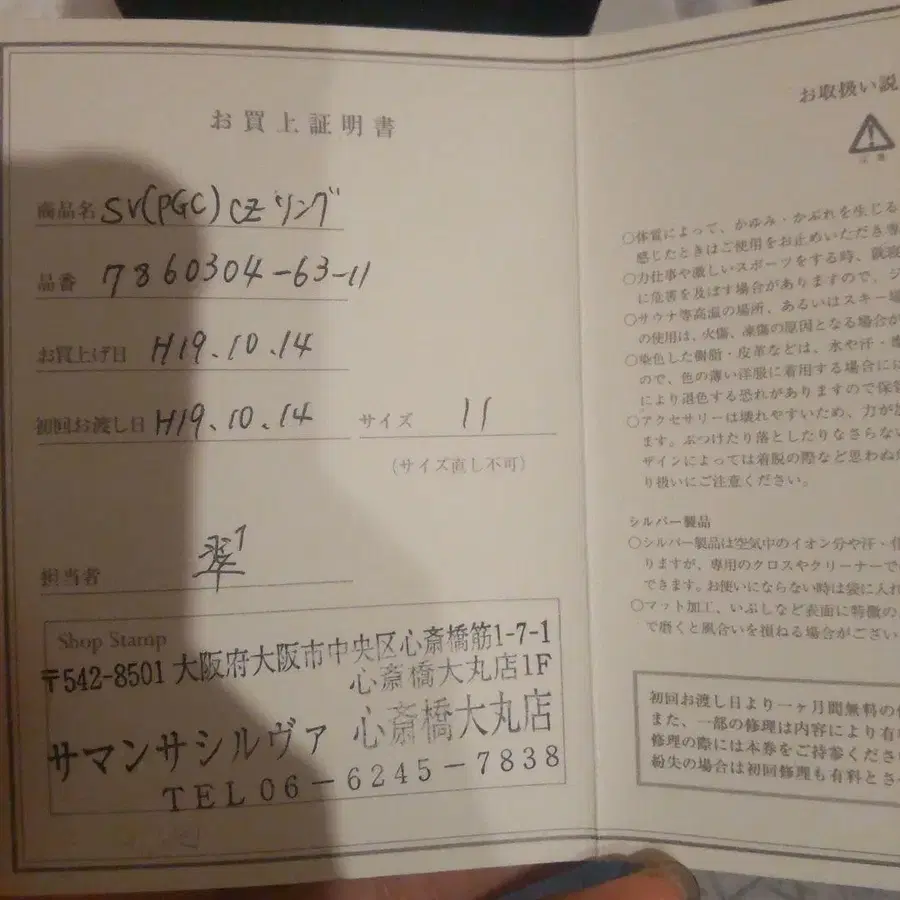 お買上証明書
商品名 SV(PGC) CZ リング
品番 7860304-63-11
お買上げ日 H19.10.14
初回お渡し日 H19.10.14 サイズ 11
(サイズ直し不可)
担当者
Shop Stamp
〒542-8501 大阪府大阪市中央区心斎橋筋1-7-1
心斎橋大丸店1F
サマンサシルヴァ 心斎橋大丸店
TEL06-6245-7838
お取扱い説
注意
○体質によって、かゆみ・かぶれを生じる
感じたときはご使用をお止めいただき専
○力仕事や激しいスポーツをする時、就寝
に危害を及ぼす場合がありますので、ジ
○サウナ等高温の場所、あるいはスキー場
の使用は、火傷、凍傷の原因となる場合が
○染色した樹脂・皮革などは、水や汗・摩
ので、色の薄い洋服に着用する場合には
により退色する恐れがありますので保管
○アクセサリーは壊れやすいため、力が加
ます。ぶつけたり落としたりなさらない
ザインによっては着脱の際など思わぬ
り扱いにご注意ください。
シルバー製品
○シルバー製品は空気中のイオン分や汗・化
りますが、専用のクロスやクリーナーで
できます。お使いにならない時は袋に入れ
○マット加工、いぶしなど表面に特徴の
で磨くと風合いを損ねる場合がござい
初回お渡し日より一ヶ月間無料の
また、一部の修理は内容により有
修理の際には本券をご持参くださ
紛失の場合は初回修理も有料とさ